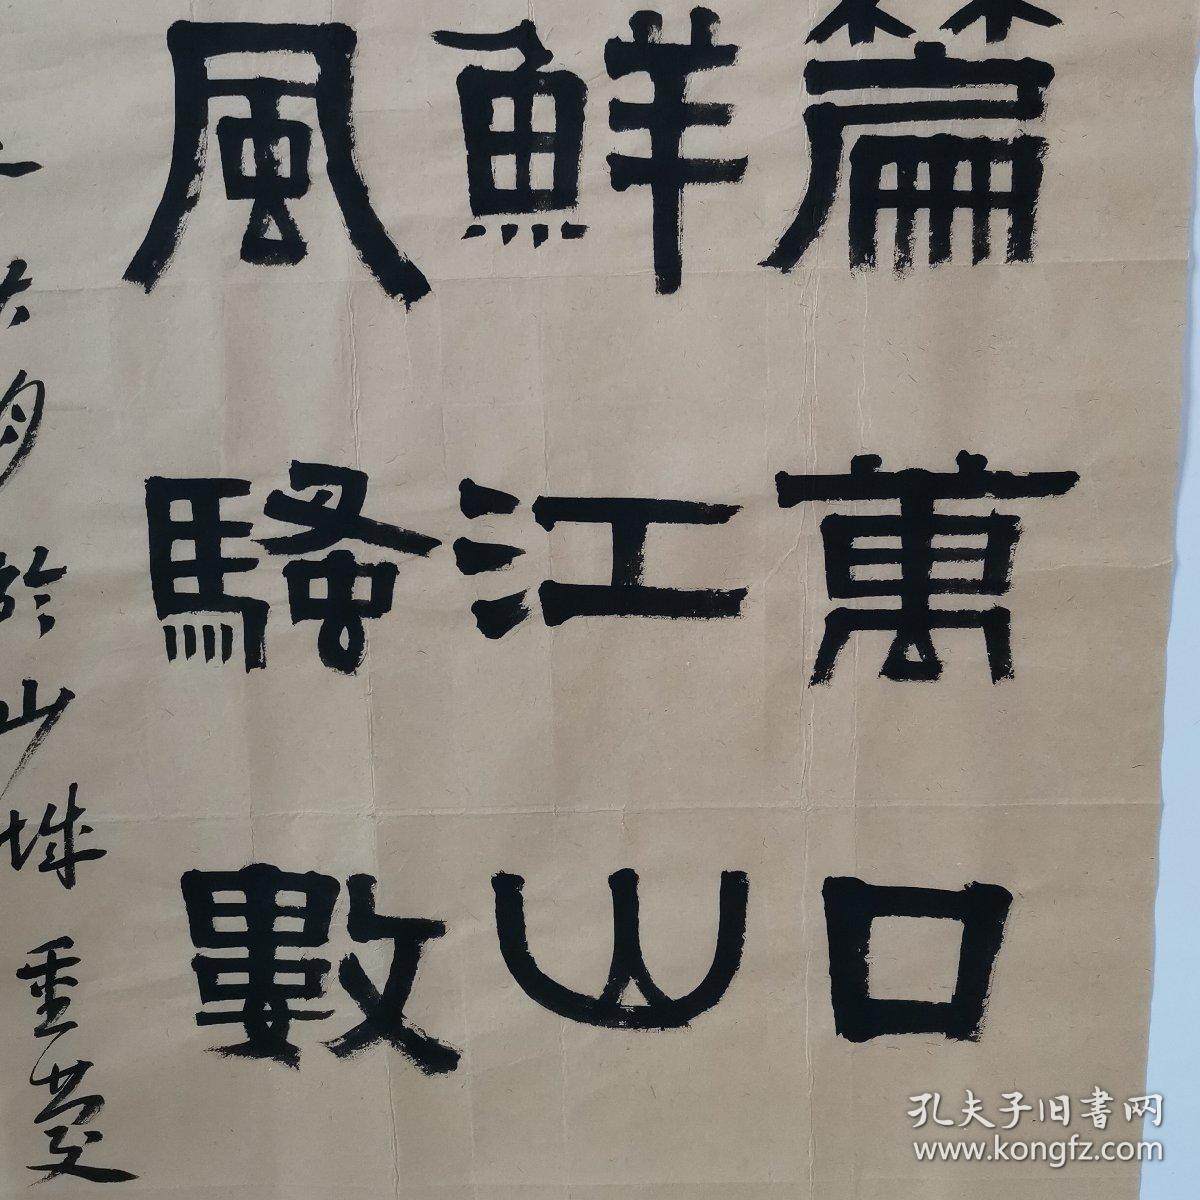 篇萬口
鮮江山
風騷數
於山城重慶
孔夫子旧書网
www.kongfz.com